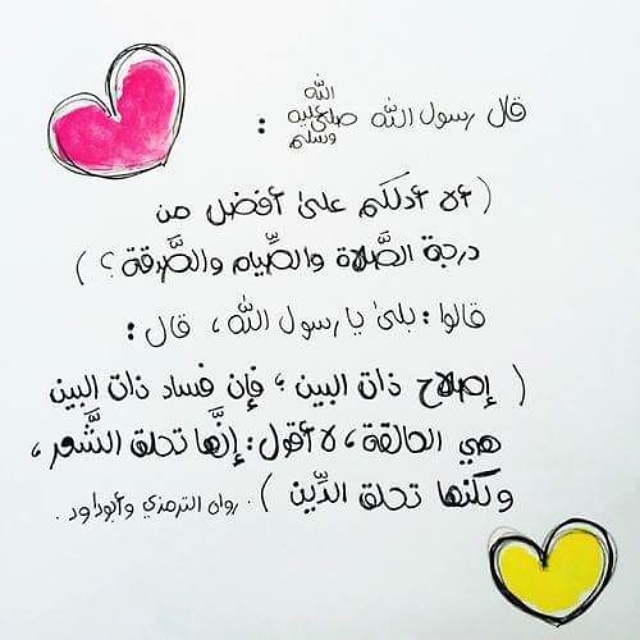 قال رسول الله صلى الله عليه وسلم :
( ألا أدلكم على أفضل من
درجة الصَّلاة والصِّيام والصَّدقة ؟ )
قالوا : بلى يا رسول الله ، قال :
( إصلاح ذات البين ؛ فإن فساد ذات البين
هي الحالقة ، لا أقول : إنَّها تحلق الشَّعر ،
ولكنها تحلق الدِّين ) . رواه الترمذي وأبوداود .